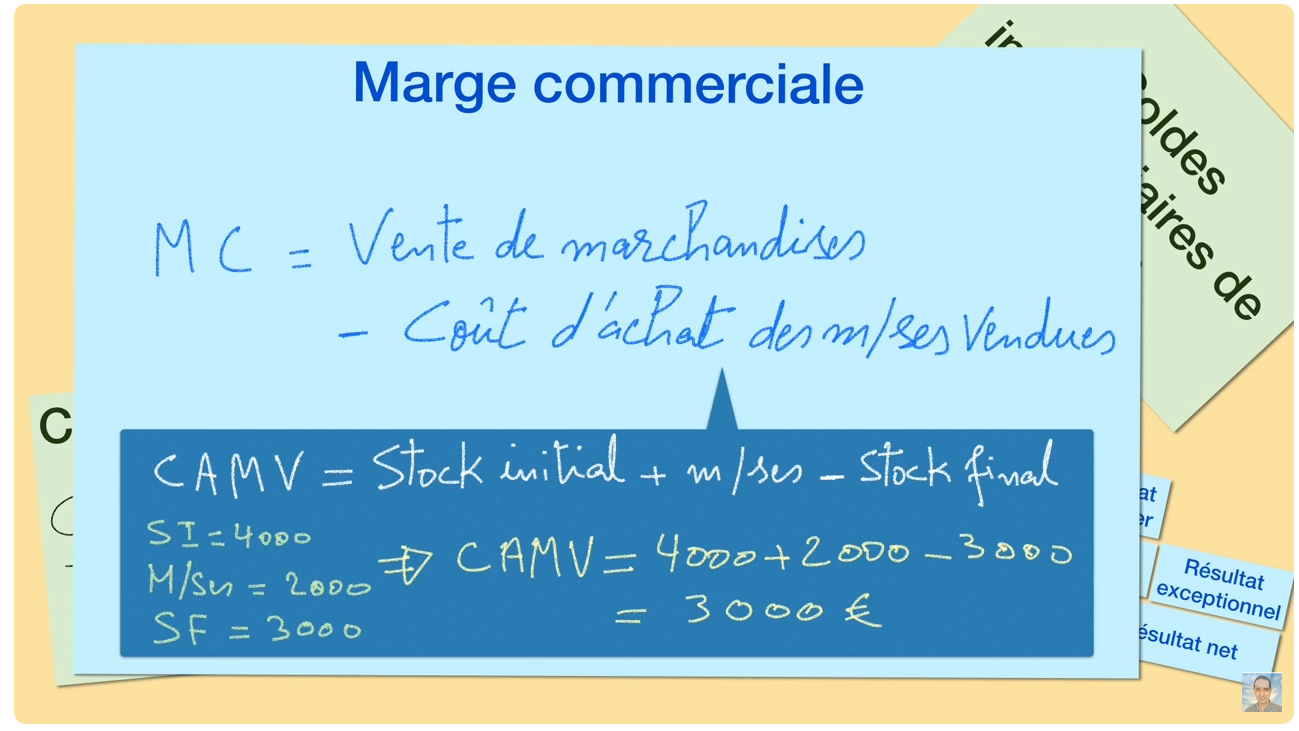 Marge commerciale
MC = Vente de marchandises
- Coût d'achat des m/ses Vendues
CAMV = Stock initial + m/ses - Stock final
SI = 4000
M/ses = 2000
SF = 3000
=> CAMV = 4000 + 2000 - 3000
= 3000 €
in
oldes
iaires de
C
at
er
Résultat
exceptionnel
ésultat net